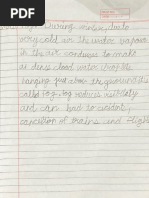 During winter, due to
very cold air the water vapour
in the air condenses to make
a dence cloud water droplets
hanging just above the ground it is
called fog. fog reduces visibility
and can had to accident,
cancellation of trains and flight